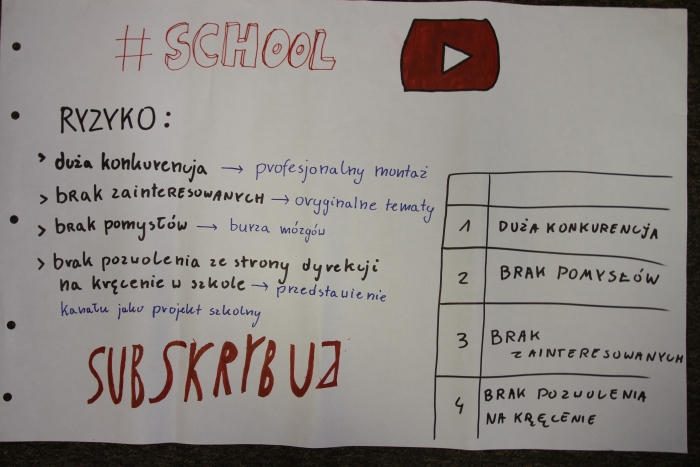 #SCHOOL
RYZYKO:
> duża konkurencja → profesjonalny montaż
> bRAK zaiNTERESOWANYCH → oryginalne tematy
> brak pomysłów → burza mózgów
> brak pozwolenia ze strony dyrekcji
na kręcenie w szkole → przedstawienie
kanału jako projekt szkolny
SUBSKRYBUJ
1 DUŻA KONKURENCJA
2 BRAK POMYSŁÓW
3 BRAK
ZAINTERESOWANYCH
4 BRAK POZWOLENIA
NA KRĘCENIE